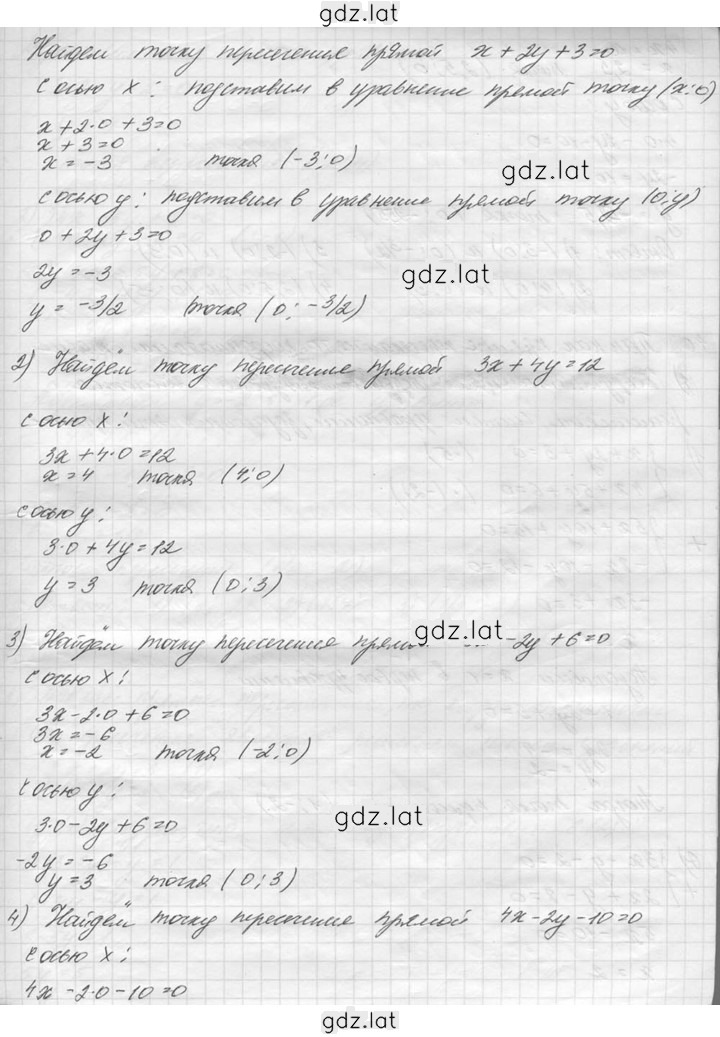 gdz.lat
Найдем точку пересечения прямой x + 2y + 3 = 0
с осью x: подставим в уравнение прямой точку (x; 0)
x + 2·0 + 3 = 0
x + 3 = 0
x = -3 точка (-3; 0)
gdz.lat
с осью y: подставим в уравнение прямой точку (0; y)
0 + 2y + 3 = 0
gdz.lat
2y = -3
y = -3/2 точка (0; -3/2)
2) Найдём точку пересечение прямой 3x + 4y = 12
с осью x:
3x + 4·0 = 12
x = 4 точка (4; 0)
с осью y:
3·0 + 4y = 12
y = 3 точка (0; 3)
gdz.lat
3) Найдём точку пересечения -2y + 6 = 0
с осью x:
3x - 2·0 + 6 = 0
3x = -6
x = -2 точка (-2; 0)
с осью y:
gdz.lat
3·0 - 2y + 6 = 0
-2y = -6
y = 3 точка (0; 3)
4) Найдём точку пересечение прямой 4x - 2y - 10 = 0
с осью x:
gdz.lat
4x - 2·0 - 10 = 0
gdz.lat